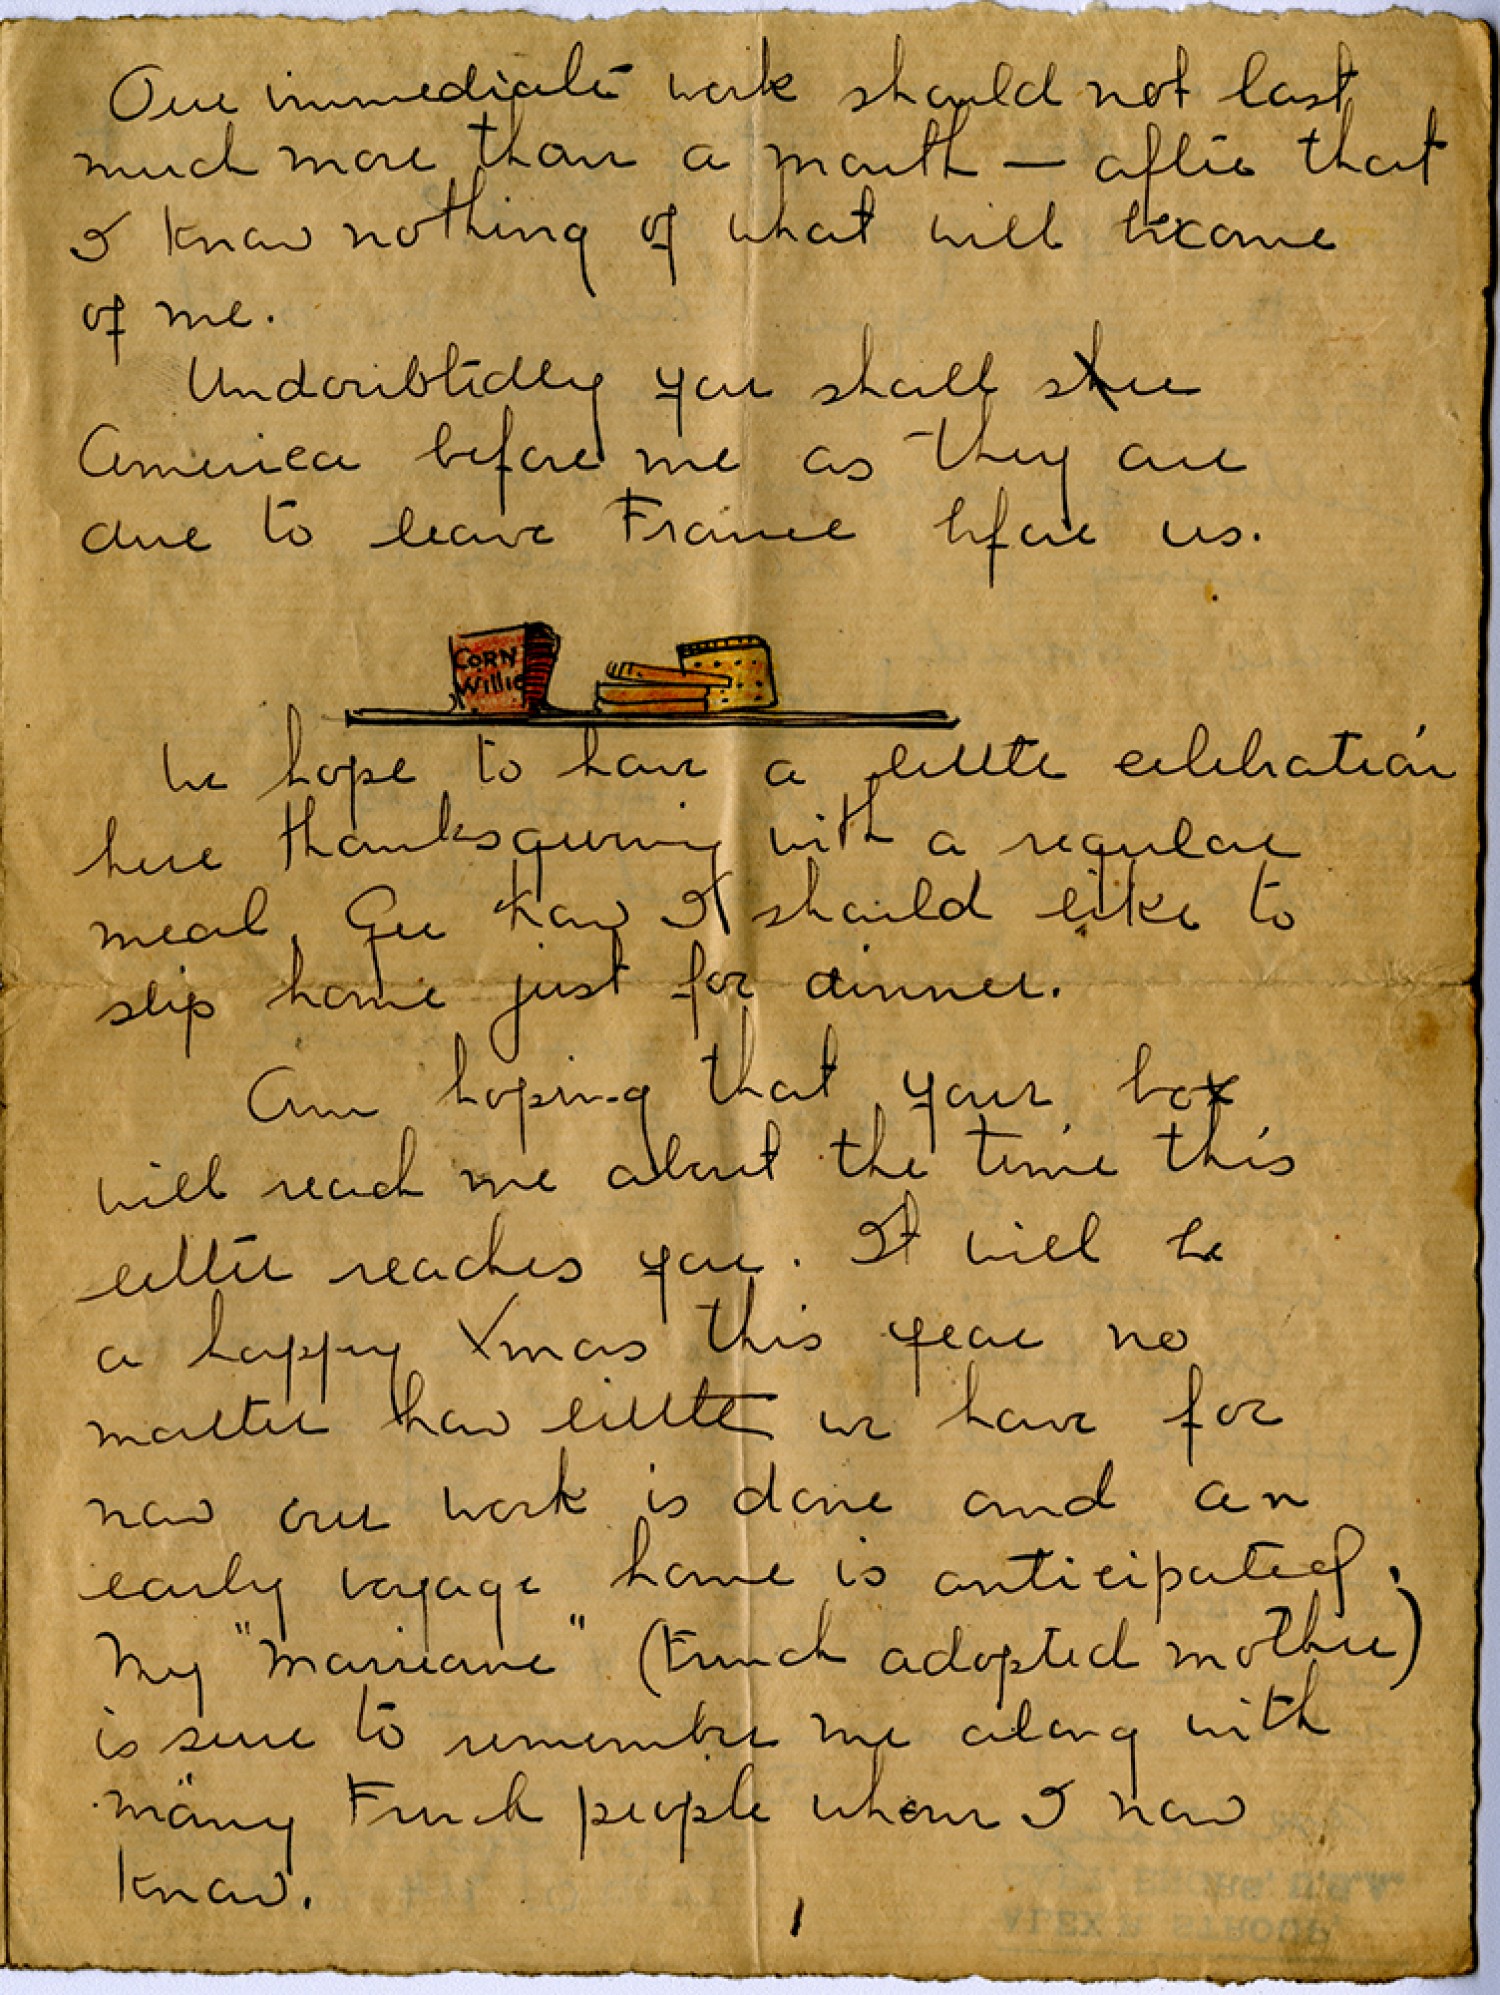 Our immediate work should not last
much more than a month — after that
I know nothing of what will become
of me.
Undoubtedly you shall see
America before me as they are
due to leave France before us.
CORN
Willie
We hope to have a little celebration
here thanksgiving with a regular
meal. Gee how I should like to
slip home just for dinner.
Am hoping that your box
will reach me about the time this
letter reaches you. It will be
a happy Xmas this year no
matter how little we have for
now our work is done and an
early voyage home is anticipated.
My "Marriane" (French adopted mother)
is sure to remember me along with
many French people whom I now
know.